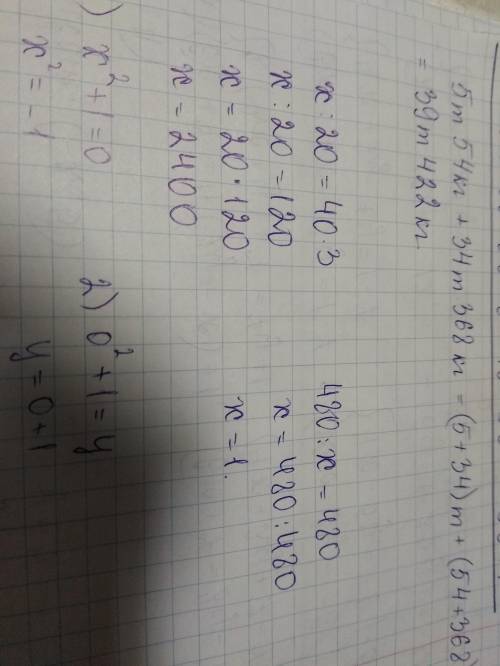 5т 54кг + 34т 368кг = (5+34)т + (54+368)
= 39т 422кг
x : 20 = 40 · 3
x : 20 = 120
x = 20 · 120
x = 2400
480 : x = 480
x = 480 : 480
x = 1.
) x² + 1 = 0
x² = -1
2) 0² + 1 = y
y = 0 + 1